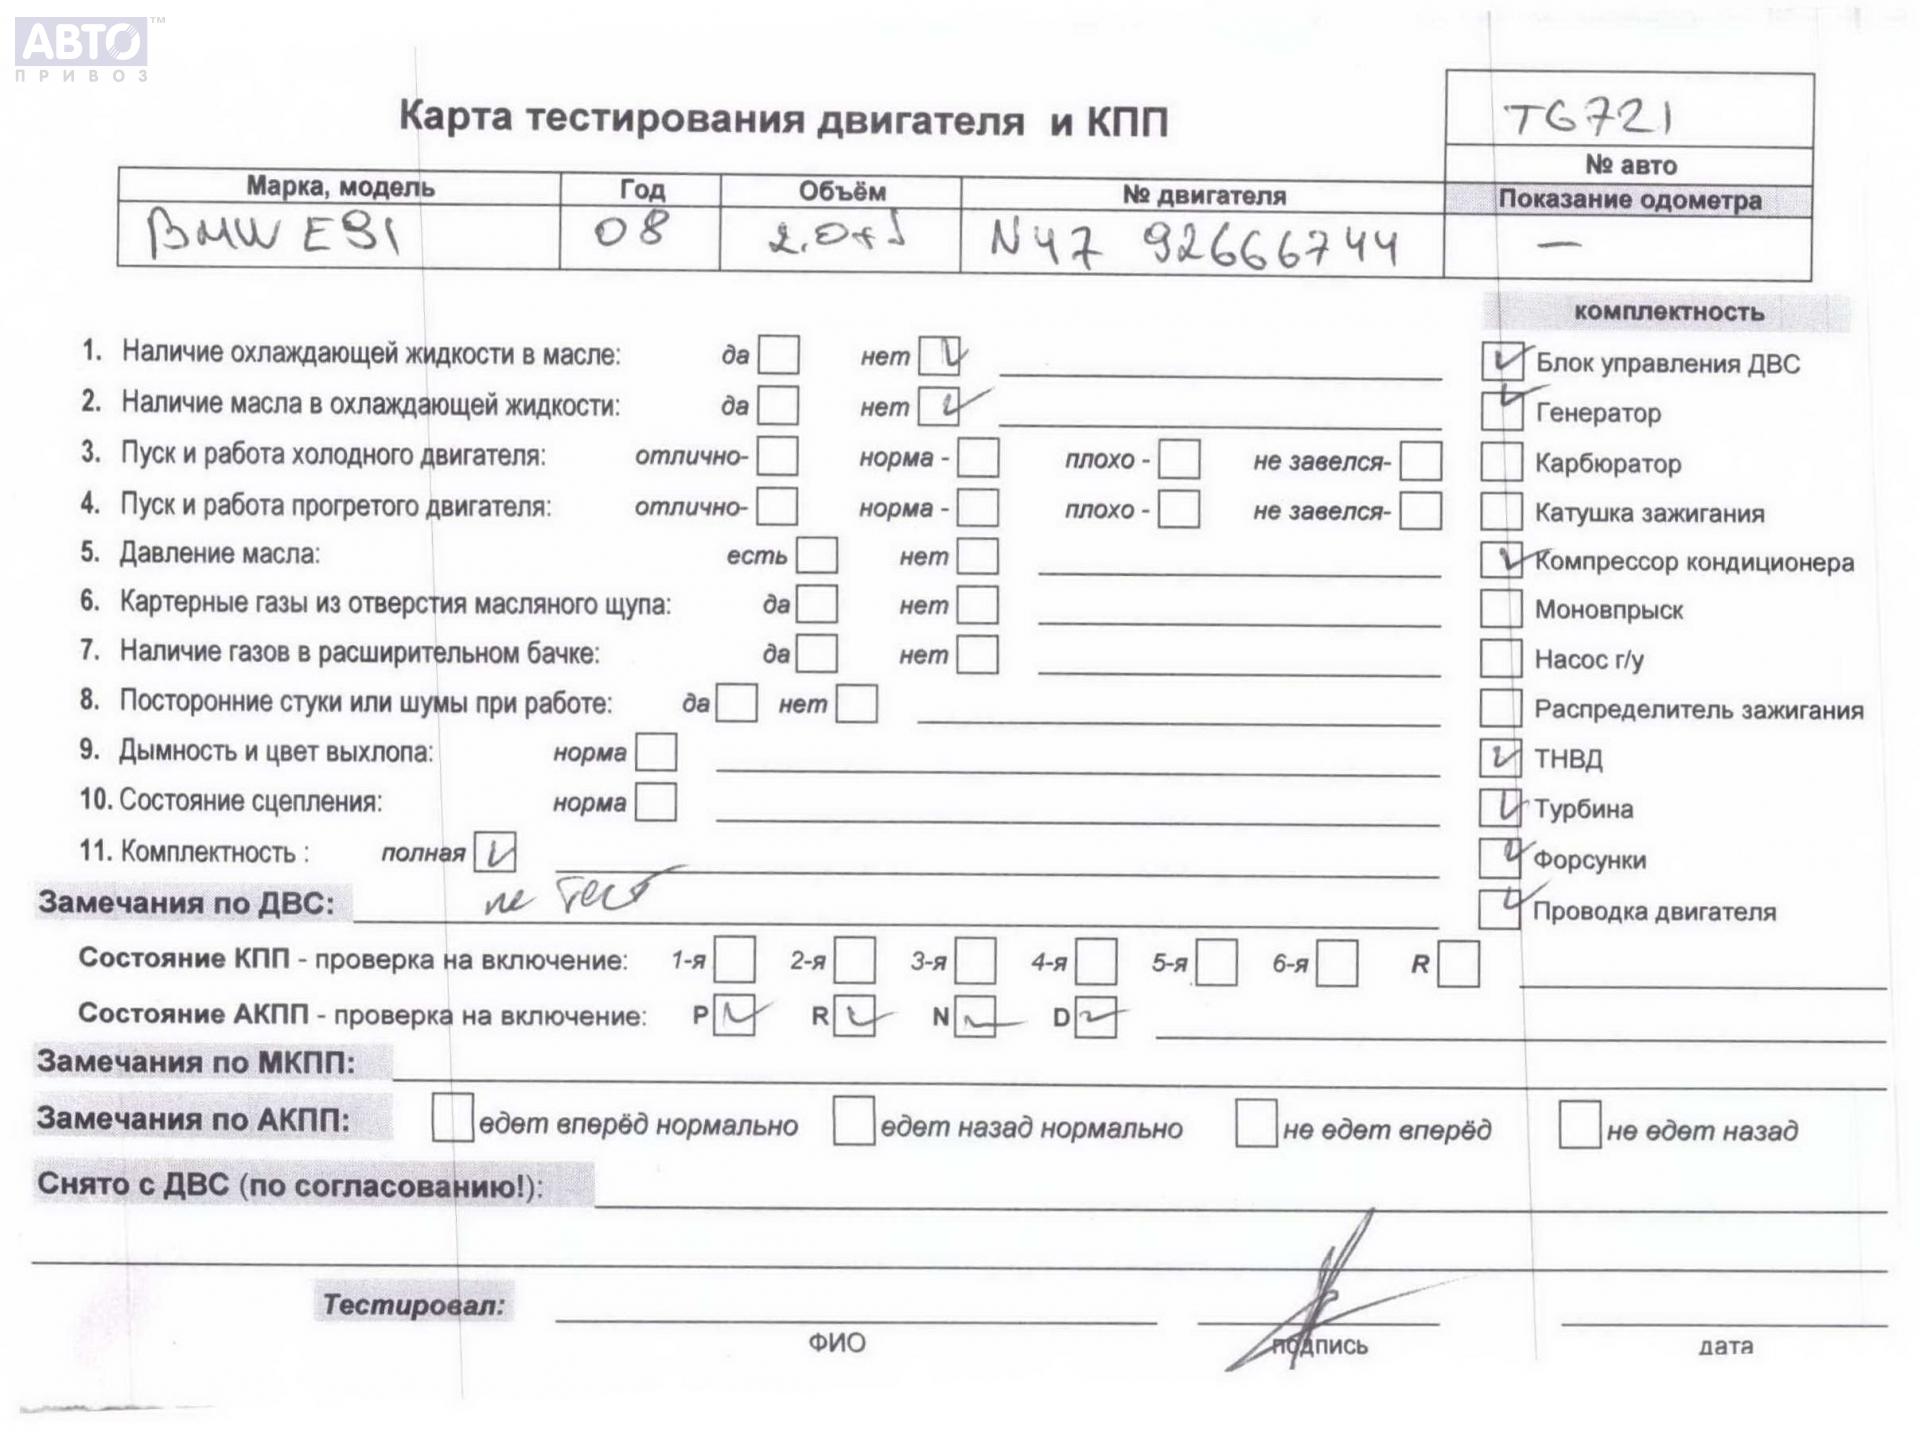 АВТО ™
ПРИВОЗ
Карта тестирования двигателя и КПП
T6721
№ авто
Марка, модель Год Объём № двигателя Показание одометра
BMW E91 08 N47 92666744 —
комплектность
1. Наличие охлаждающей жидкости в масле: да нет
Блок управления ДВС
2. Наличие масла в охлаждающей жидкости: да нет
Генератор
3. Пуск и работа холодного двигателя: отлично- норма - плохо - не завелся-
Карбюратор
4. Пуск и работа прогретого двигателя: отлично- норма - плохо - не завелся-
Катушка зажигания
5. Давление масла: есть нет
Компрессор кондиционера
6. Картерные газы из отверстия масляного щупа: да нет
Моновпрыск
7. Наличие газов в расширительном бачке: да нет
Насос г/у
8. Посторонние стуки или шумы при работе: да нет
Распределитель зажигания
9. Дымность и цвет выхлопа: норма
ТНВД
10. Состояние сцепления: норма
Турбина
11. Комплектность : полная
Форсунки
Замечания по ДВС: не тест
Проводка двигателя
Состояние КПП - проверка на включение: 1-я 2-я 3-я 4-я 5-я 6-я R
Состояние АКПП - проверка на включение: P R N D
Замечания по МКПП:
Замечания по АКПП: едет вперёд нормально едет назад нормально не едет вперёд не едет назад
Снято с ДВС (по согласованию!):
Тестировал:
ФИО подпись дата